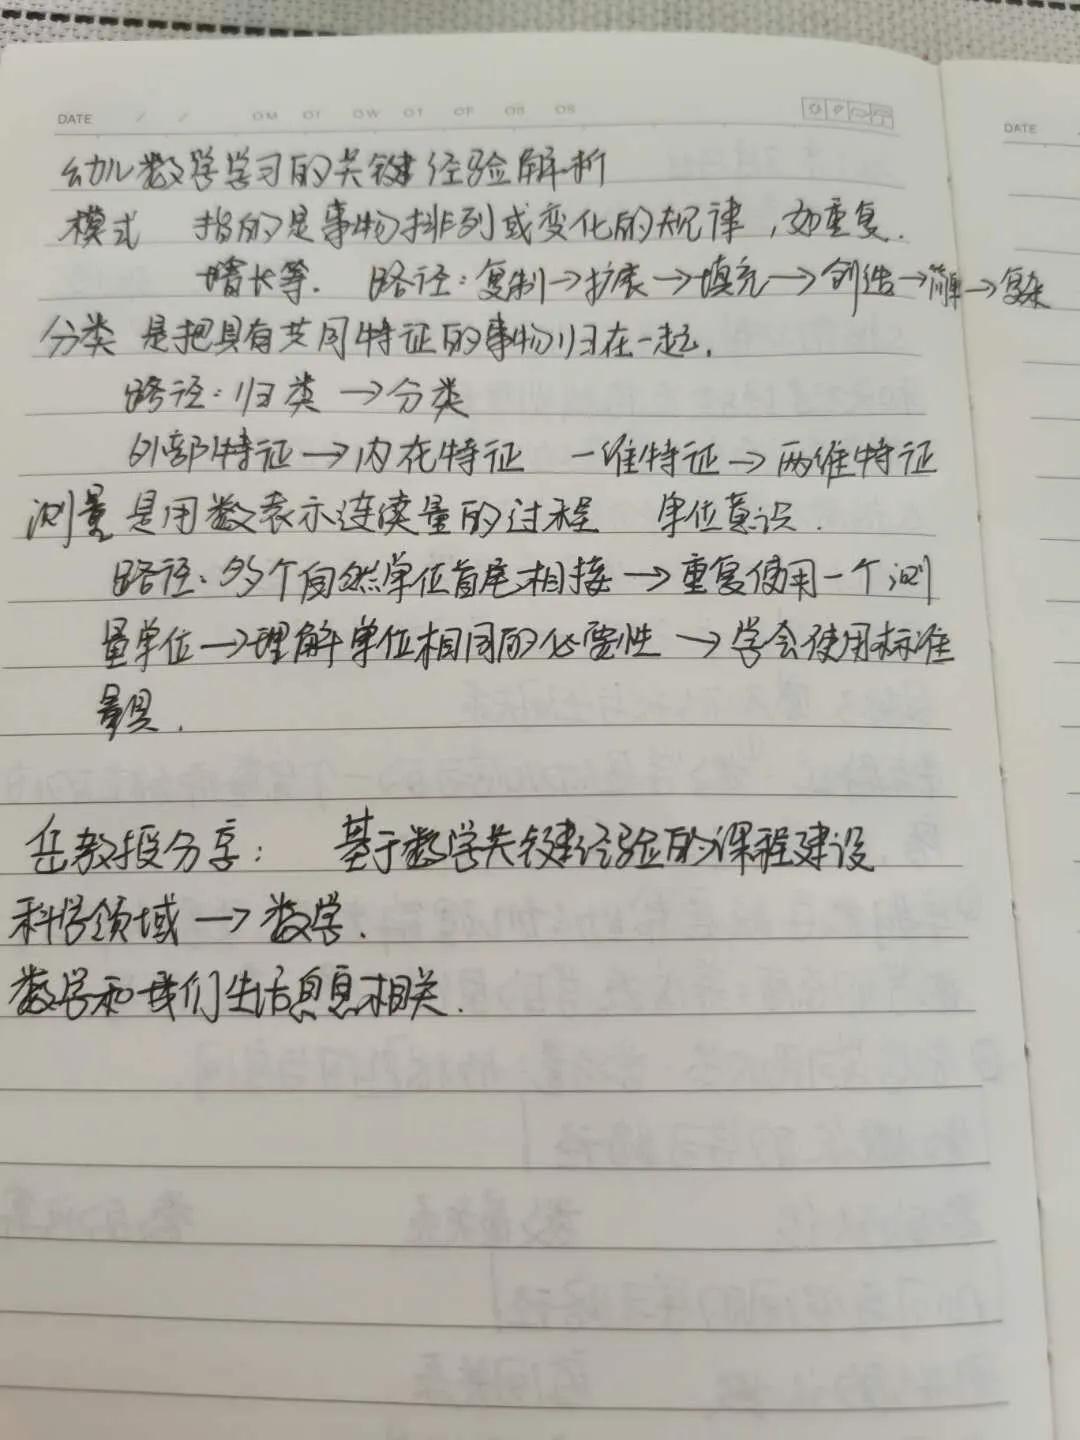 DATE / /
幼儿数学学习的关键经验解析
模式 指的是事物排列或变化的规律,如重复.
增长等. 路径:复制→扩展→填充→创造→简单→复杂
分类 是把具有共同特征的事物归在一起.
路径:归类→分类
外部特征→内在特征 一维特征→两维特征
测量 是用数表示连续量的过程 单位意识.
路径:多个自然单位首尾相接→重复使用一个测
量单位→理解单位相同的必要性→学会使用标准
量具.
岳教授分享: 基于数学关键经验的课程建设
科学领域→数学.
数学和我们生活息息相关.
DATE